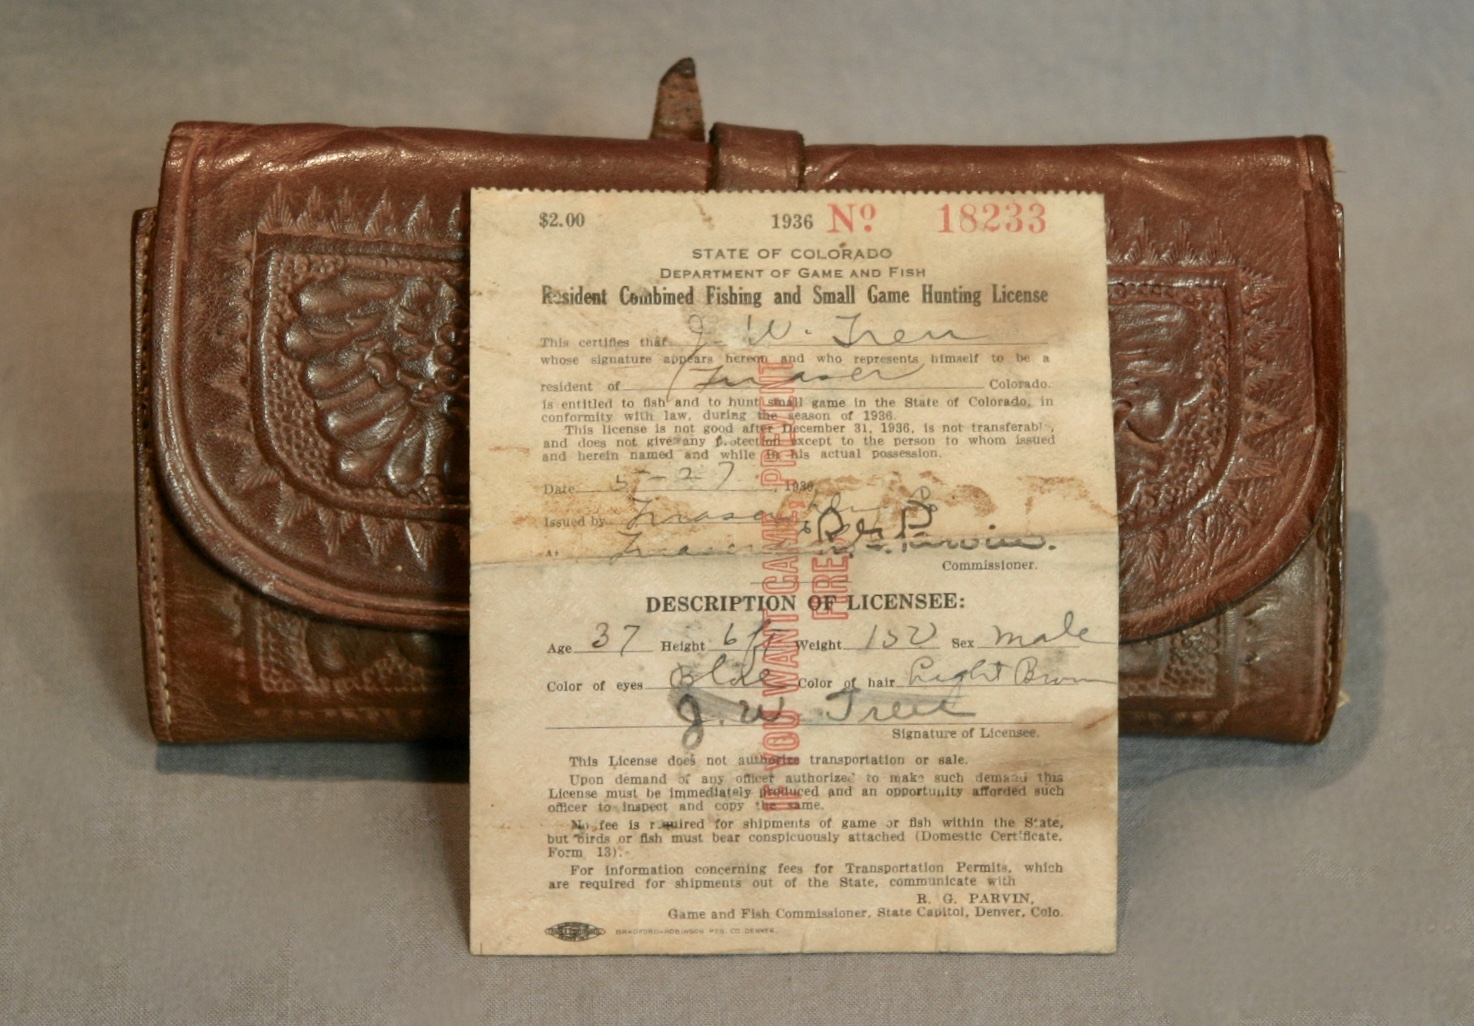 $2.00 1936 Nº 18233
STATE OF COLORADO
DEPARTMENT OF GAME AND FISH
Resident Combined Fishing and Small Game Hunting License
This certifies that J. W. Tren
whose signature appears hereon and who represents himself to be a
resident of Fraser Colorado.
is entitled to fish and to hunt small game in the State of Colorado, in
conformity with law, during the season of 1936.
This license is not good after December 31, 1936, is not transferable,
and does not give any protection except to the person to whom issued
and herein named and while in his actual possession.
Date 5-27, 1936
Issued by Fraser
At Fraser R. G. Parvin.
Commissioner.
IF YOU WANT GAME, PREVENT
FIRES
DESCRIPTION OF LICENSEE:
Age 37 Height 6 ft Weight 150 Sex Male
Color of eyes Blue Color of hair Light Brown
J. W. Tren
Signature of Licensee.
This License does not authorize transportation or sale.
Upon demand of any officer authorized to make such demand this
License must be immediately produced and an opportunity afforded such
officer to inspect and copy the same.
No fee is required for shipments of game or fish within the State,
but birds or fish must bear conspicuously attached (Domestic Certificate,
Form 13).
For information concerning fees for Transportation Permits, which
are required for shipments out of the State, communicate with
R. G. PARVIN,
Game and Fish Commissioner, State Capitol, Denver, Colo.
BRADFORD-ROBINSON PTG. CO. DENVER.